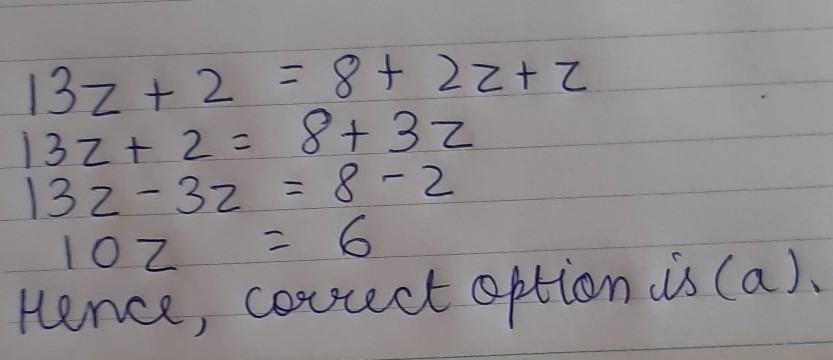 13z + 2 = 8 + 2z + z
13z + 2 = 8 + 3z
13z - 3z = 8 - 2
10z = 6
Hence, correct option is (a).